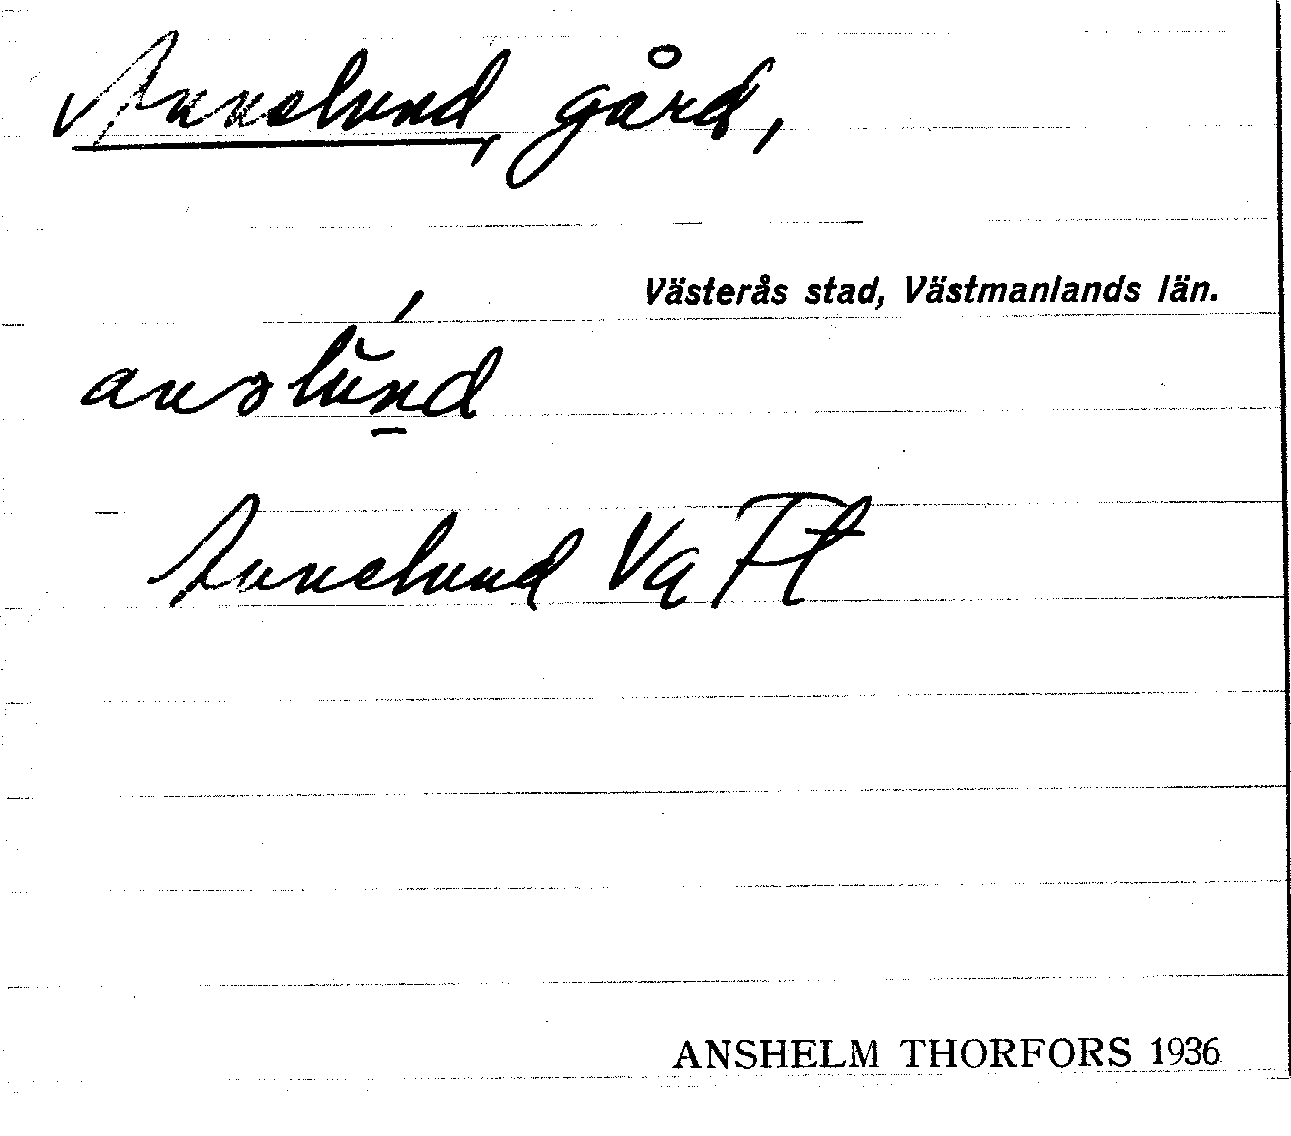 Annelund, gård,
Västerås stad, Västmanlands län.
Annelund Va Fl
ANSHELM THORFORS 1936